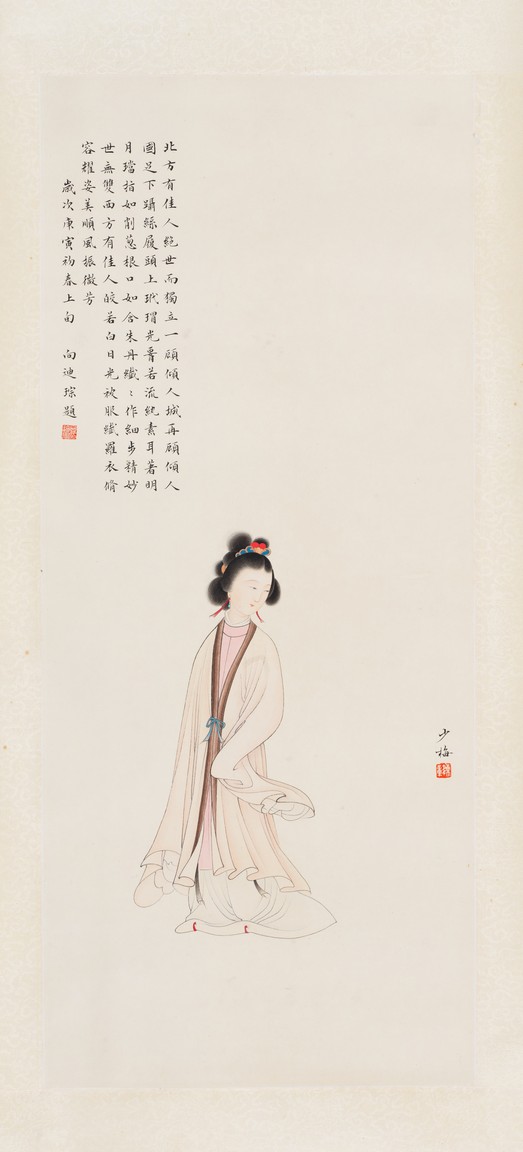 北方有佳人絕世而獨立一顧傾人城再顧傾人
國足下躡絲履頭上玳瑁光䏿若流紈素耳著明
月璫指如削蔥根口如含朱丹纖〻作細步精妙
世無雙西方有佳人皎若白日光被服纖羅衣脩
容耀姿美順風振微芳
歲次庚寅初春上旬 向迪琮題
少梅